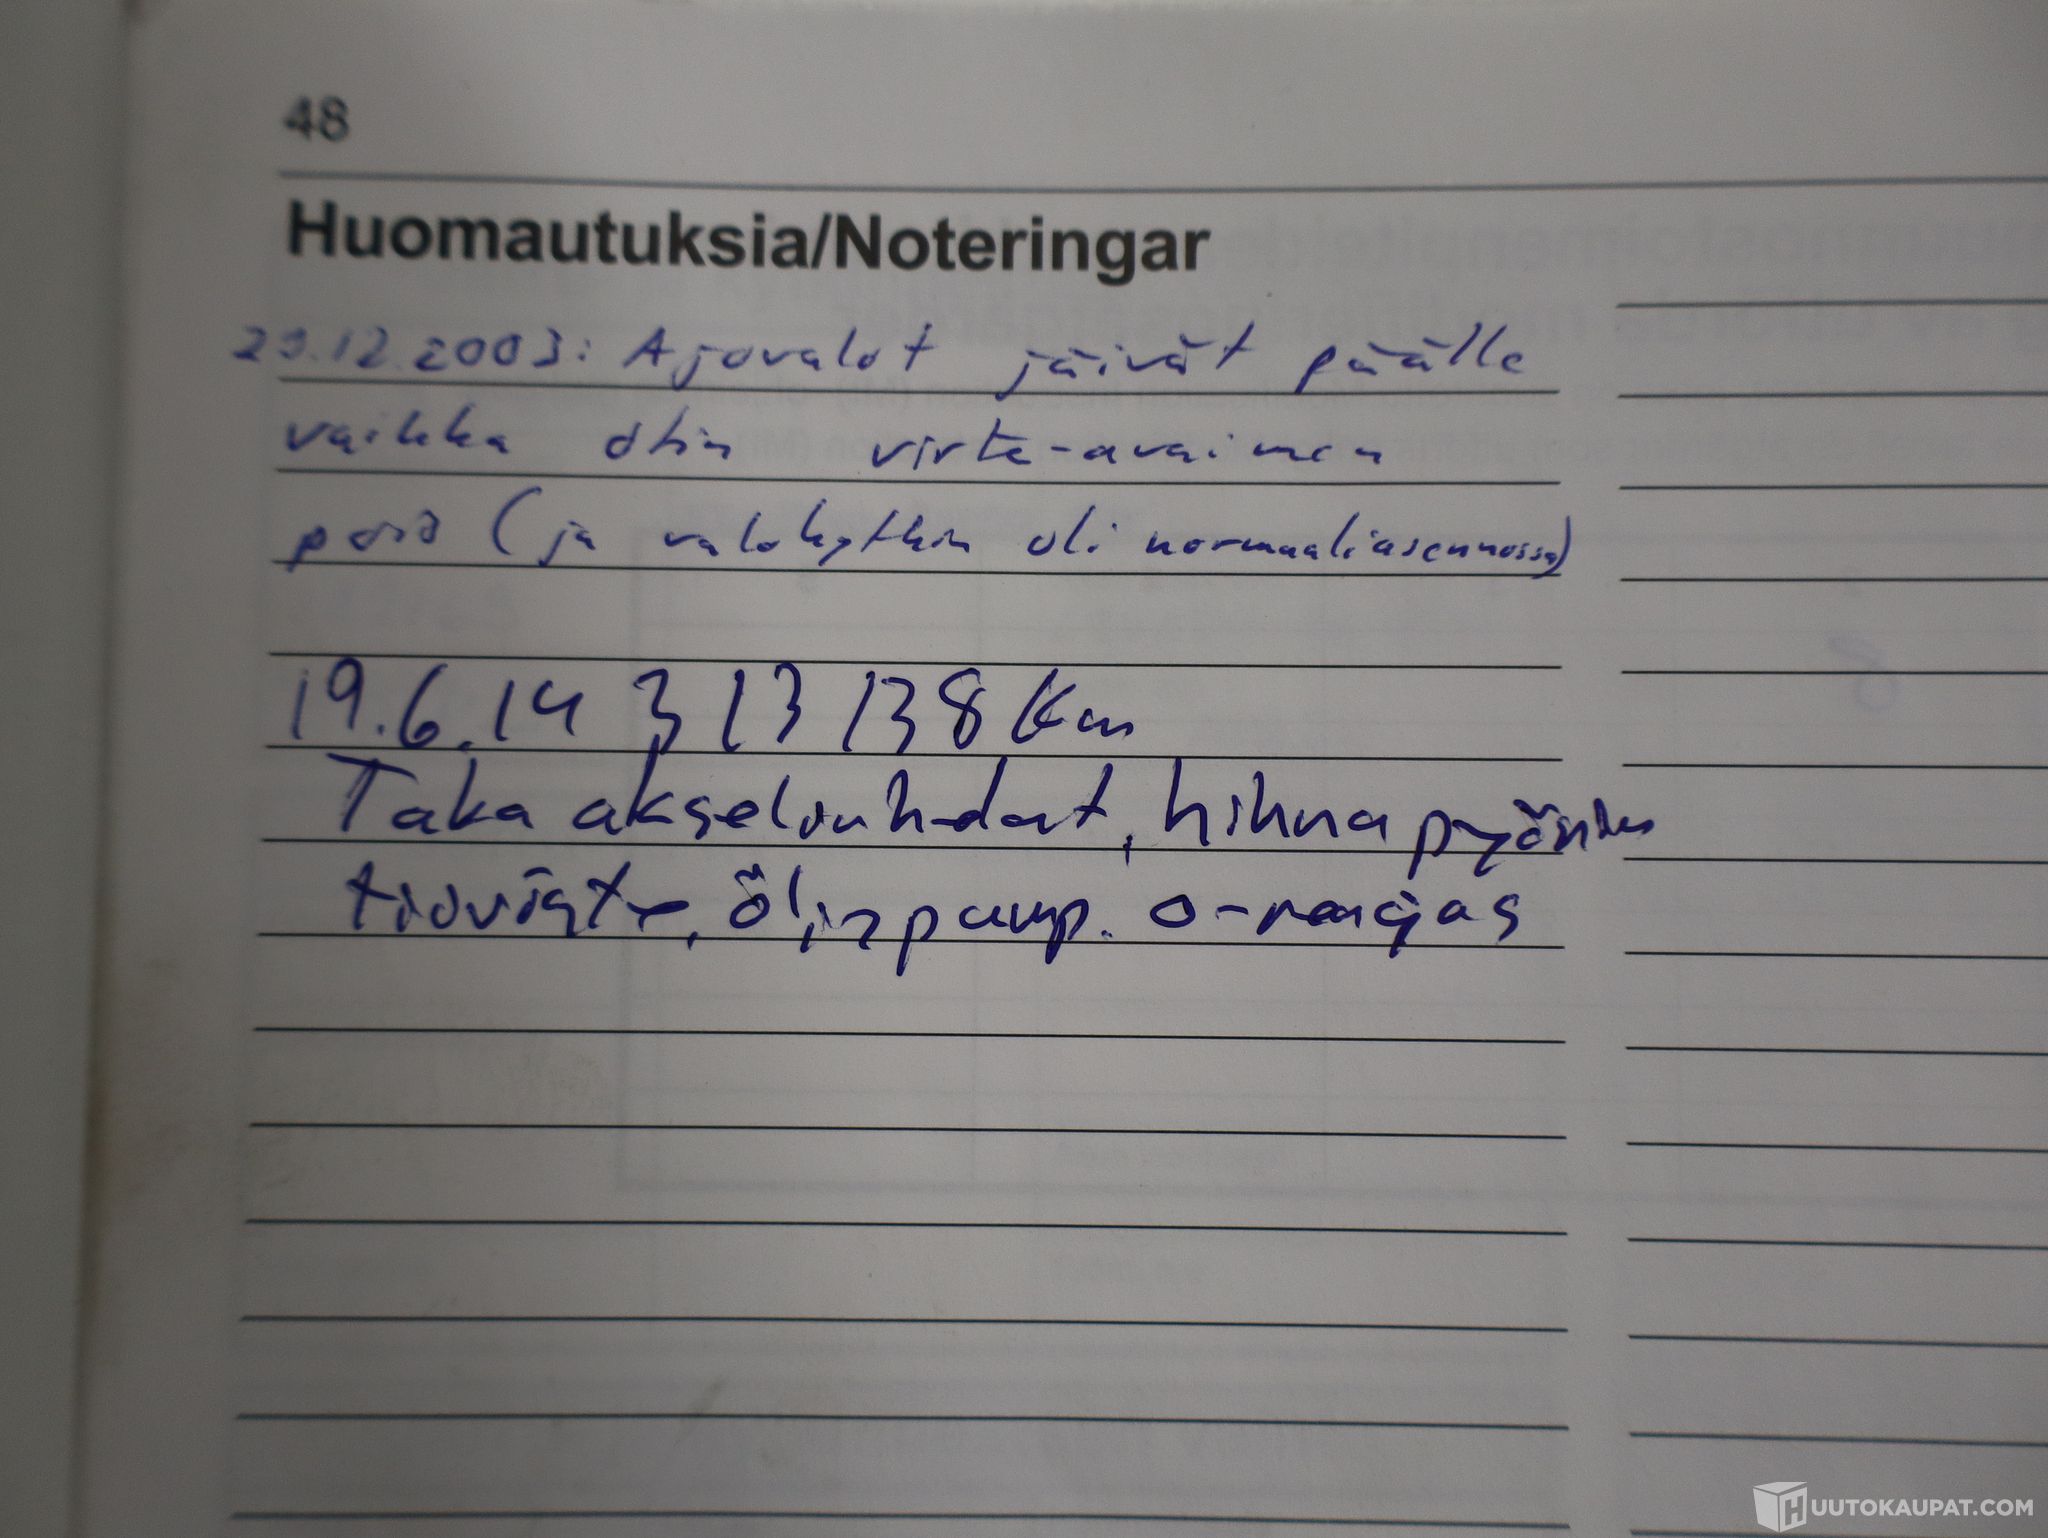 48
Huomautuksia/Noteringar
29.12.2003: Ajovalot jäivät päälle
vaikka otin virta-avaimen
pois (ja valokytkin oli normaaliasennossa)
19.6.14 313 138 Km
Taka akselin , hihnapyörän
tiiviste, öljypump. o-rengas
HUUTOKAUPAT.COM